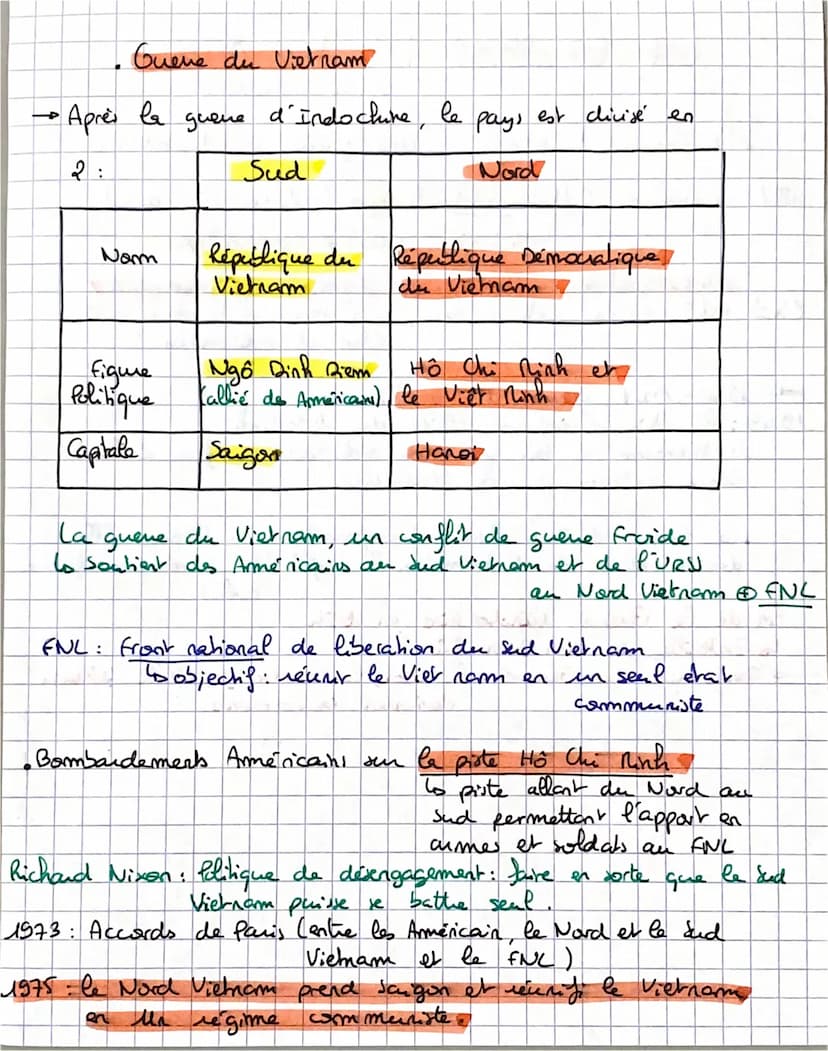 . Guerre du Vietnam
→ Après la guerre d'Indochine, le pays est divisé en
2 :
Sud Nord
Nom République du Vietnam République Démocratique du Vietnam
Figure Politique Ngô Dinh Diem (allié des Américains) Hô Chi Minh et le Viêt Minh
Capitale Saigon Hanoi
La guerre du Vietnam, un conflit de guerre froide
↳ Soutient des Américains au Sud Vietnam et de l'URSS
au Nord Vietnam ⊕ FNL
FNL : Front national de liberation du Sud Vietnam
↳ objectif : réunir le Viet nam en un seul état
communiste
. Bombardements Américains sur la piste Hô Chi Minh
↳ piste allant du Nord au
Sud permettant l'apport en
armes et soldats au FNL
Richard Nixon : Politique de désengagement : faire en sorte que le Sud
Vietnam puisse se battre seul.
1973 : Accords de Paris (entre les Américain, le Nord et le Sud
Vietnam et le FNL)
1975 : le Nord Vietnam prend Saigon et réunifi le Vietnam
en un régime communiste.